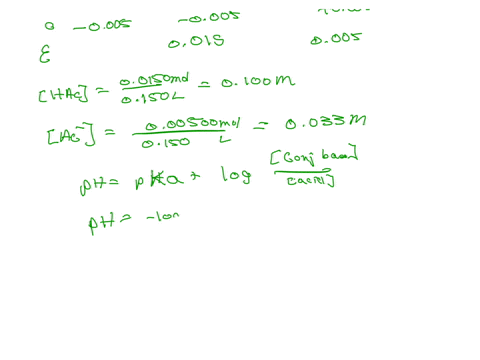 0 -0.005 -0.005
E 0.015 0.005
[HAc] = 0.0150mol / 0.150L = 0.100M
[Ac⁻] = 0.00500mol / 0.150 L = 0.033M
pH = pKa + log [Conj base] / [acid]
pH = -log